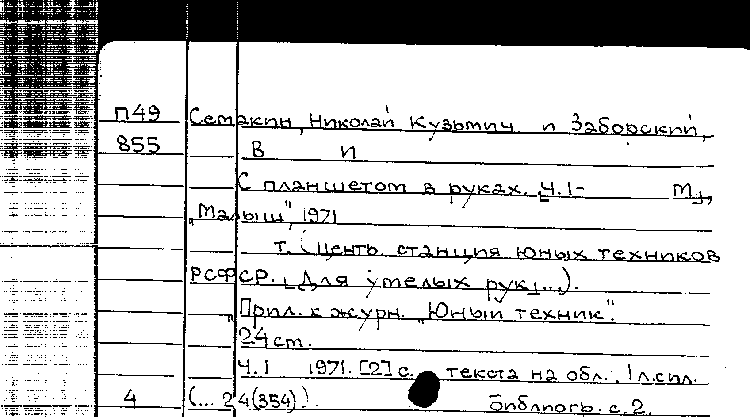 П49 Семакин, Николай Кузьмич и Заборский,
855 В И
С планшетом в руках. Ч.1- М.,
"Малыш", 1971
т. (Центр. станция юных техников
РСФСР. Для умелых рук...).
Прил. к журн. "Юный техник".
24 ст.
Ч.1 1971. [2] с. текста на обл., 1 л.
4 (... 24(354)). библиогр. с. 2